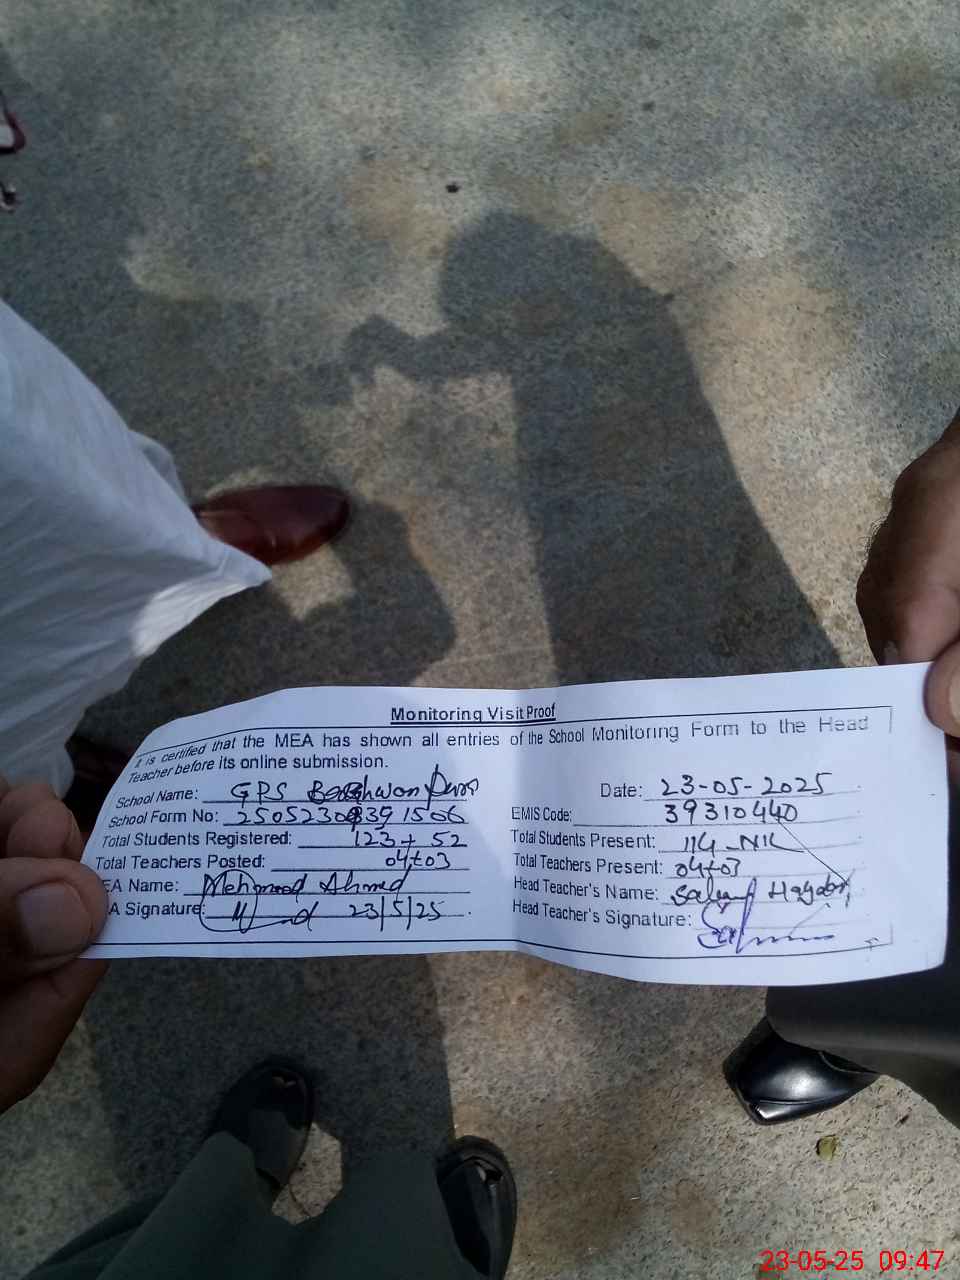 Monitoring Visit Proof
It is certified that the MEA has shown all entries of the School Monitoring Form to the Head
Teacher before its online submission.
School Name: GPS
Date: 23-05-2025
School Form No:
EMIS Code: 39310440
Total Students Registered: 123+ 52
Total Students Present: 114-Nil
Total Teachers Posted: 04+03
Total Teachers Present: 04+03
EA Name: Mehmood Ahmed
Head Teacher's Name:
A Signature: 23/5/25
Head Teacher's Signature:
23-05-25 09:47